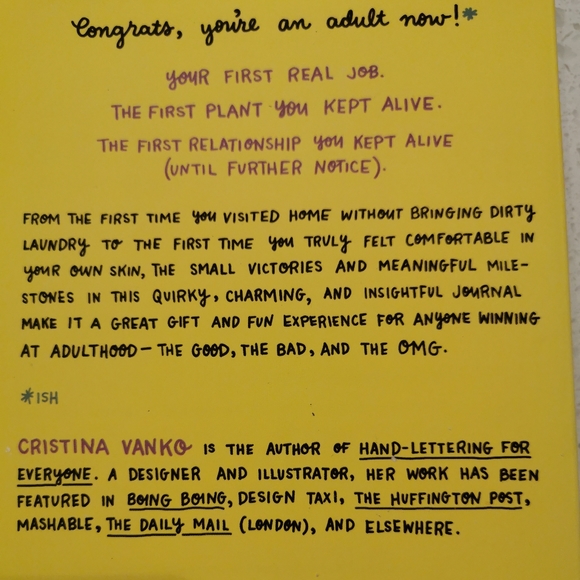 Congrats, you're an adult now!*
YOUR FIRST REAL JOB.
THE FIRST PLANT YOU KEPT ALIVE.
THE FIRST RELATIONSHIP YOU KEPT ALIVE
(UNTIL FURTHER NOTICE).
FROM THE FIRST TIME YOU VISITED HOME WITHOUT BRINGING DIRTY
LAUNDRY TO THE FIRST TIME YOU TRULY FELT COMFORTABLE IN
YOUR OWN SKIN, THE SMALL VICTORIES AND MEANINGFUL MILE-
STONES IN THIS QUIRKY, CHARMING, AND INSIGHTFUL JOURNAL
MAKE IT A GREAT GIFT AND FUN EXPERIENCE FOR ANYONE WINNING
AT ADULTHOOD—THE GOOD, THE BAD, AND THE OMG.
*ISH
CRISTINA VANKO IS THE AUTHOR OF HAND-LETTERING FOR
EVERYONE. A DESIGNER AND ILLUSTRATOR, HER WORK HAS BEEN
FEATURED IN BOING BOING, DESIGN TAXI, THE HUFFINGTON POST,
MASHABLE, THE DAILY MAIL (LONDON), AND ELSEWHERE.